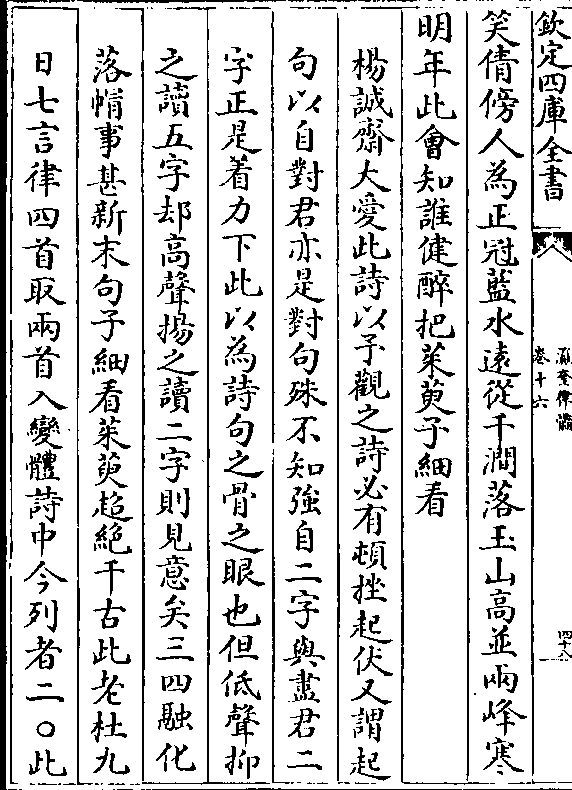 欽定四庫全書
瀛奎律髓
卷十六
四十八
笑倩傍人為正冠藍水遠從千澗落玉山高並兩峰寒
明年此會知誰健醉把茱萸子細看
楊誠齋大愛此詩以予觀之詩必有頓挫起伏又謂起
句以自對君亦是對句殊不知強自二字與盡君二
字正是着力下此以為詩句之骨之眼也但低聲抑
之讀五字却高聲揚之讀二字則見意矣三四融化
落帽事甚新末句子細看茱萸超絶千古此老杜九
日七言律四首取兩首入變體詩中今列者二○此